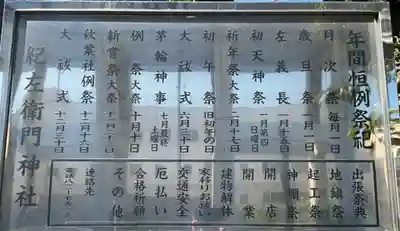 年間恒例祭祀
月次祭 毎月一日
歳旦祭 一月一日
左義長 一月十五日
初天神祭 一月第四日曜日
祈年祭大祭 二月十七日
初午祭 旧初午の日
大祓式 六月三十日
茅輪神事 七月最終土曜日
例祭大祭 十月十日
新嘗祭大祭
秋葉社例祭 十二月十六日
大祓式 十二月三十日
紀左衛門神社
出張祭典
地鎮祭
起工祭
神棚祭
開店
開業
建物解体
家移りお祓い
交通安全
厄払い
合格祈願
その他
連絡先